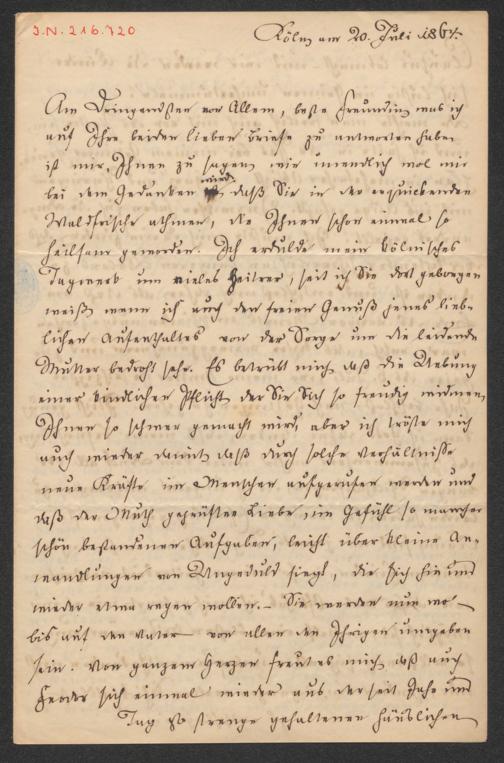 J.N. 216.720
Köln am 20. Juli 1864.
Am Dringendsten vor Allem, beste Freundin, was ich
auf Ihre beiden lieben Briefe zu antworten habe
ist mir, Ihnen zu sagen wie unendlich wol mir
bei dem Gedanken wird, daß Sie in der erquickenden
Waldfrische athmen, die Ihnen schon einmal so
heilsam geworden. Ich erdulde mein kölnisches
Tagewerk um vieles heitrer, seit ich Sie dort geborgen
weiß, wenn ich auch den freien Genuß jenes lieb-
lichen Aufenthaltes von der Sorge um die leidende
Mutter bedroht sehe. Es betrübt mich, daß die Uebung
einer kindlichen Pflicht, der Sie Sich so freudig widmen,
Ihnen so schwer gemacht wird, aber ich tröste mich
auch wieder damit, daß durch solche Verhältnisse
neue Kräfte im Menschen aufgerufen werden und
daß der Muth geprüfter Liebe, im Gefühl so mancher
schön bestandenen Aufgaben, leicht über kleine An-
wandlungen von Ungeduld siegt, die sich hin und
wieder etwa regen wollen. – Sie werden nun wo-
bis auf den Vater von allen den Ihrigen umgeben
sein. Von ganzem Herzen freut es mich, daß auch
sich einmal wieder aus der seit Jahr und
Tag so strenge gehaltenen häuslichen